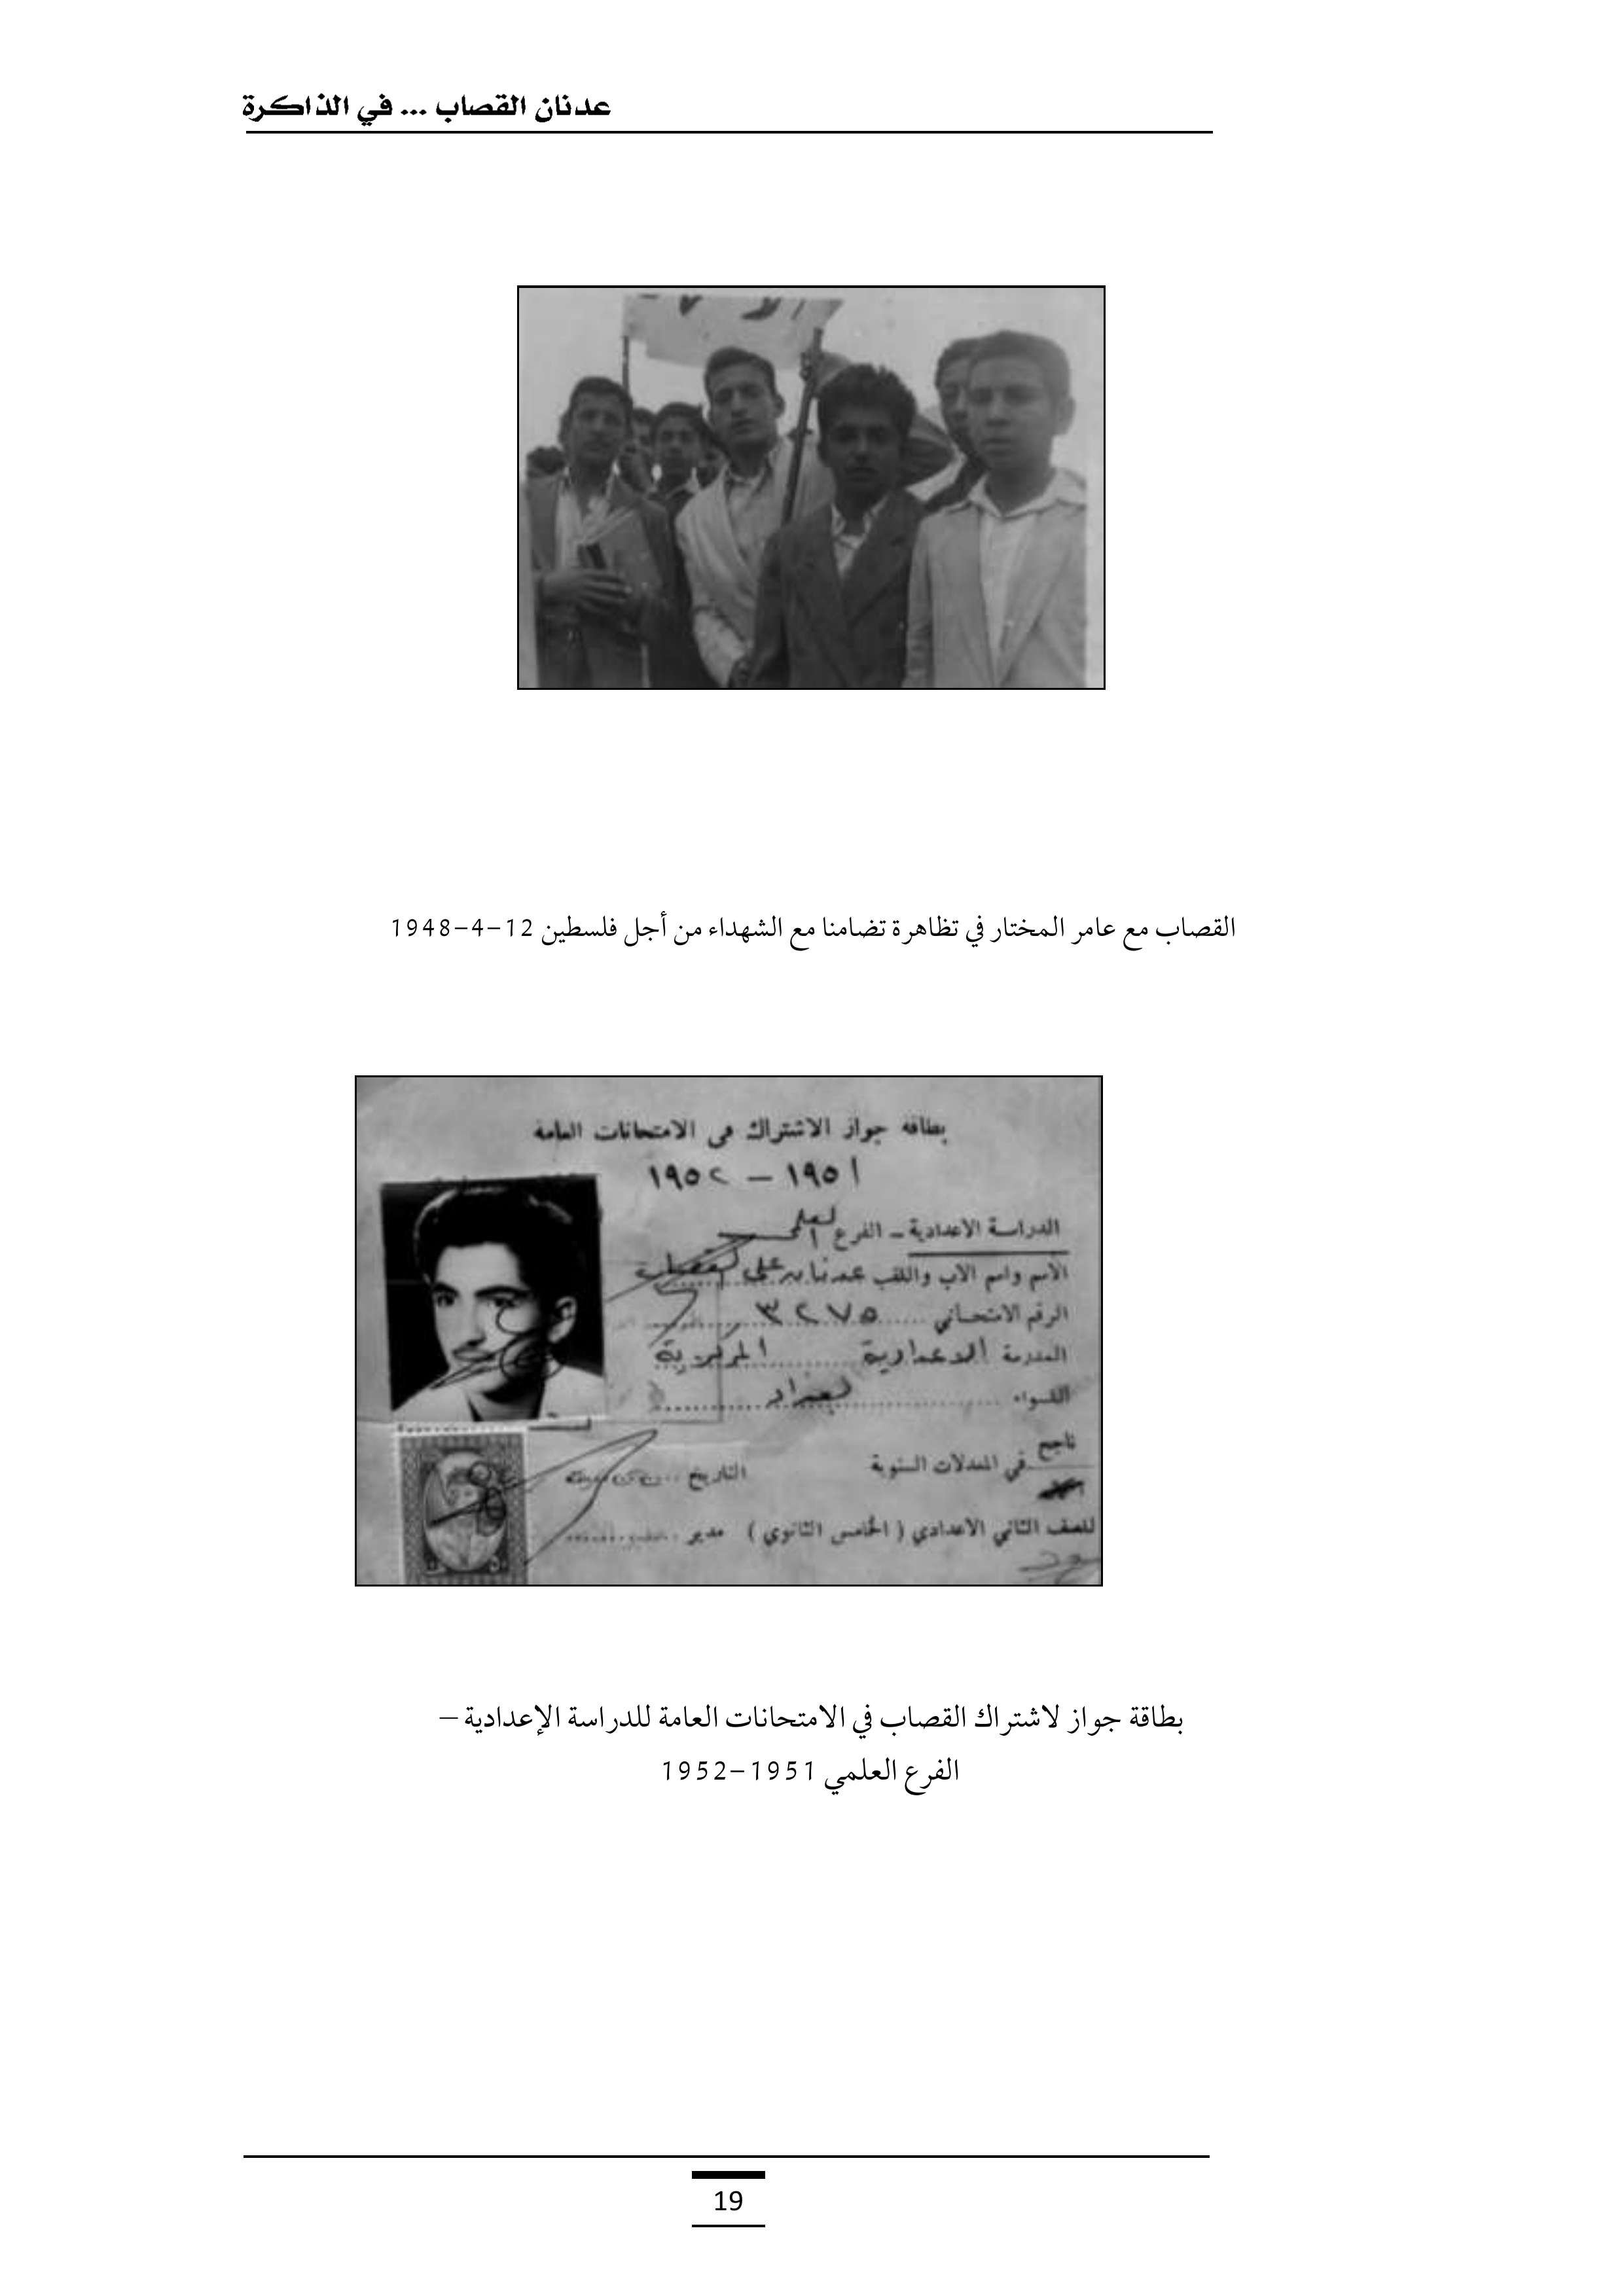 عدنان القصاب ... في الذاكرة
القصاب مع عامر المختار في تظاهرة تضامنا مع الشهداء من أجل فلسطين 12-4-1948
بطاقة جواز الاشتراك في الامتحانات العامة
١٩٥١ – ١٩٥٢
الدراسة الاعدادية – الفرع العلمي
الاسم واسم الاب واللقب عدنان علي القصاب
الرقم الامتحاني ٣٢٧٥
المدرسة الاعدادية المركزية
اللواء بغداد
ناجح
في المعدلات السنوية التاريخ
للصف الثاني الاعدادي ( الخامس الثانوي ) مدير
بطاقة جواز لاشتراك القصاب في الامتحانات العامة للدراسة الإعدادية –
الفرع العلمي 1951-1952
19